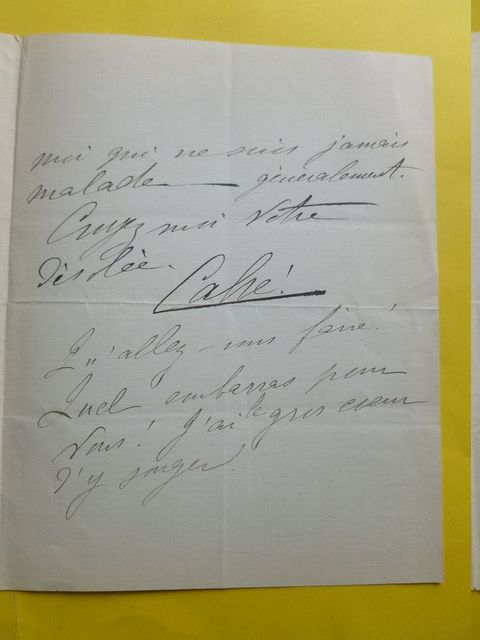 moi qui ne suis jamais
malade — généralement.
Croyez moi Votre
Désolée.
Qu'allez-vous faire!
Quel embarras pour
Vous! J'ai le gros coeur
d'y songer!